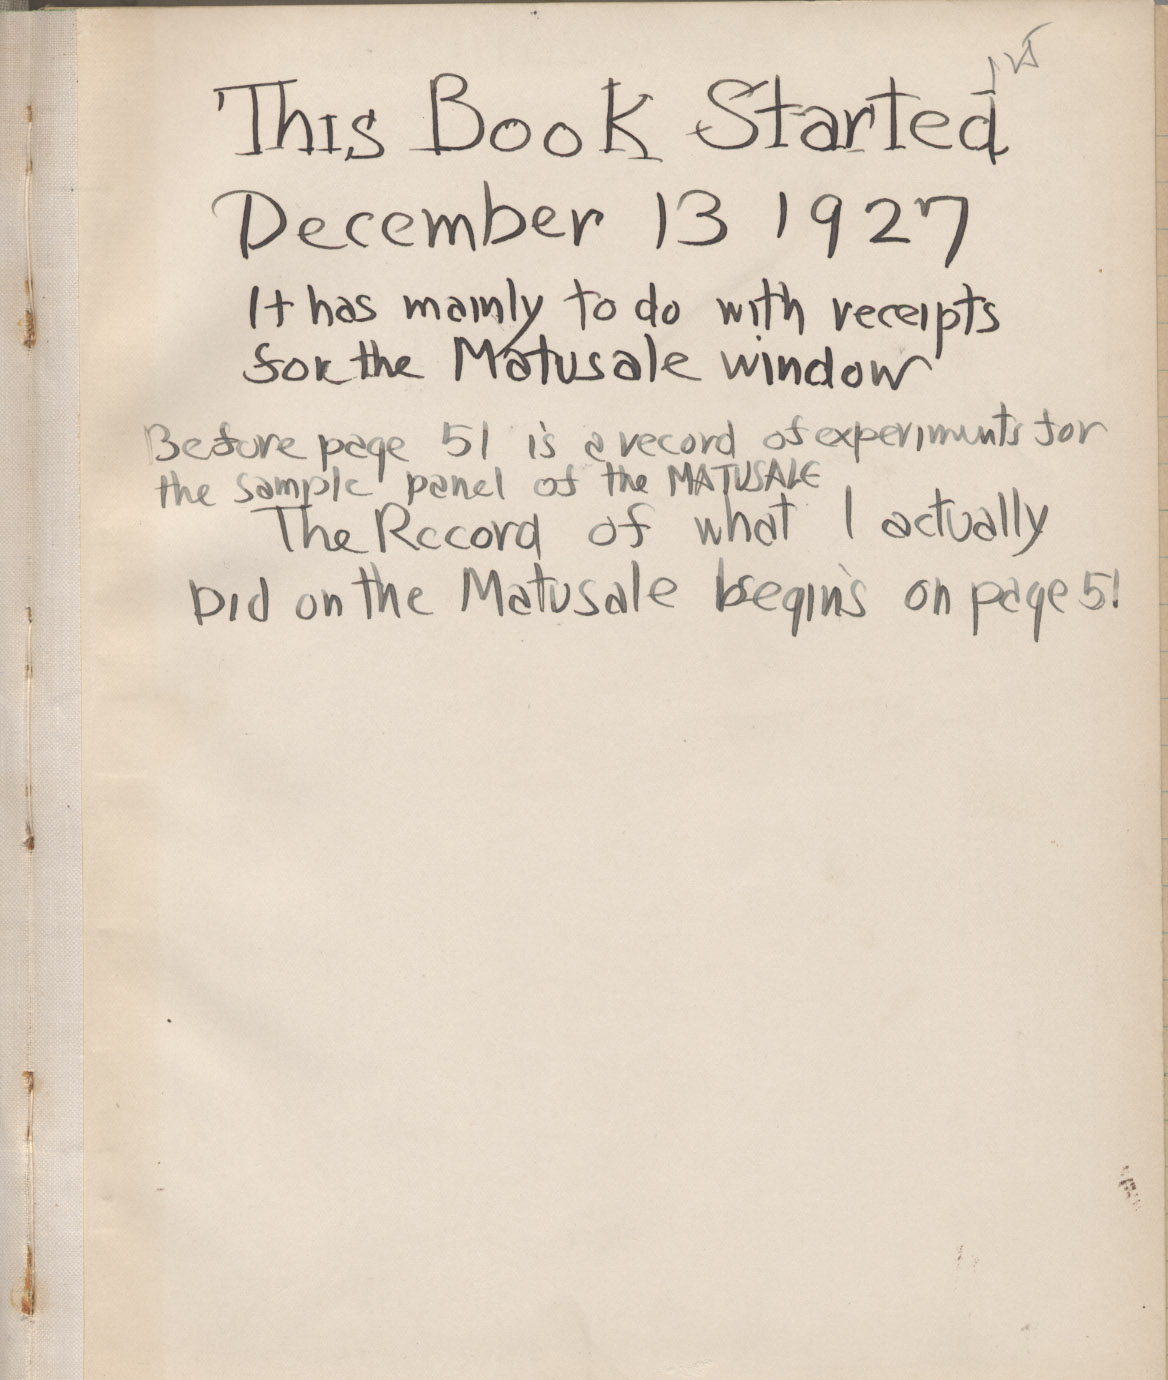 This Book Started
December 13 1927
It has mainly to do with receipts
for the Matusale window
Before page 51 is a record of experiments for
the sample panel of the MATUSALE
The Record of what I actually
Did on the Matusale begins on page 51